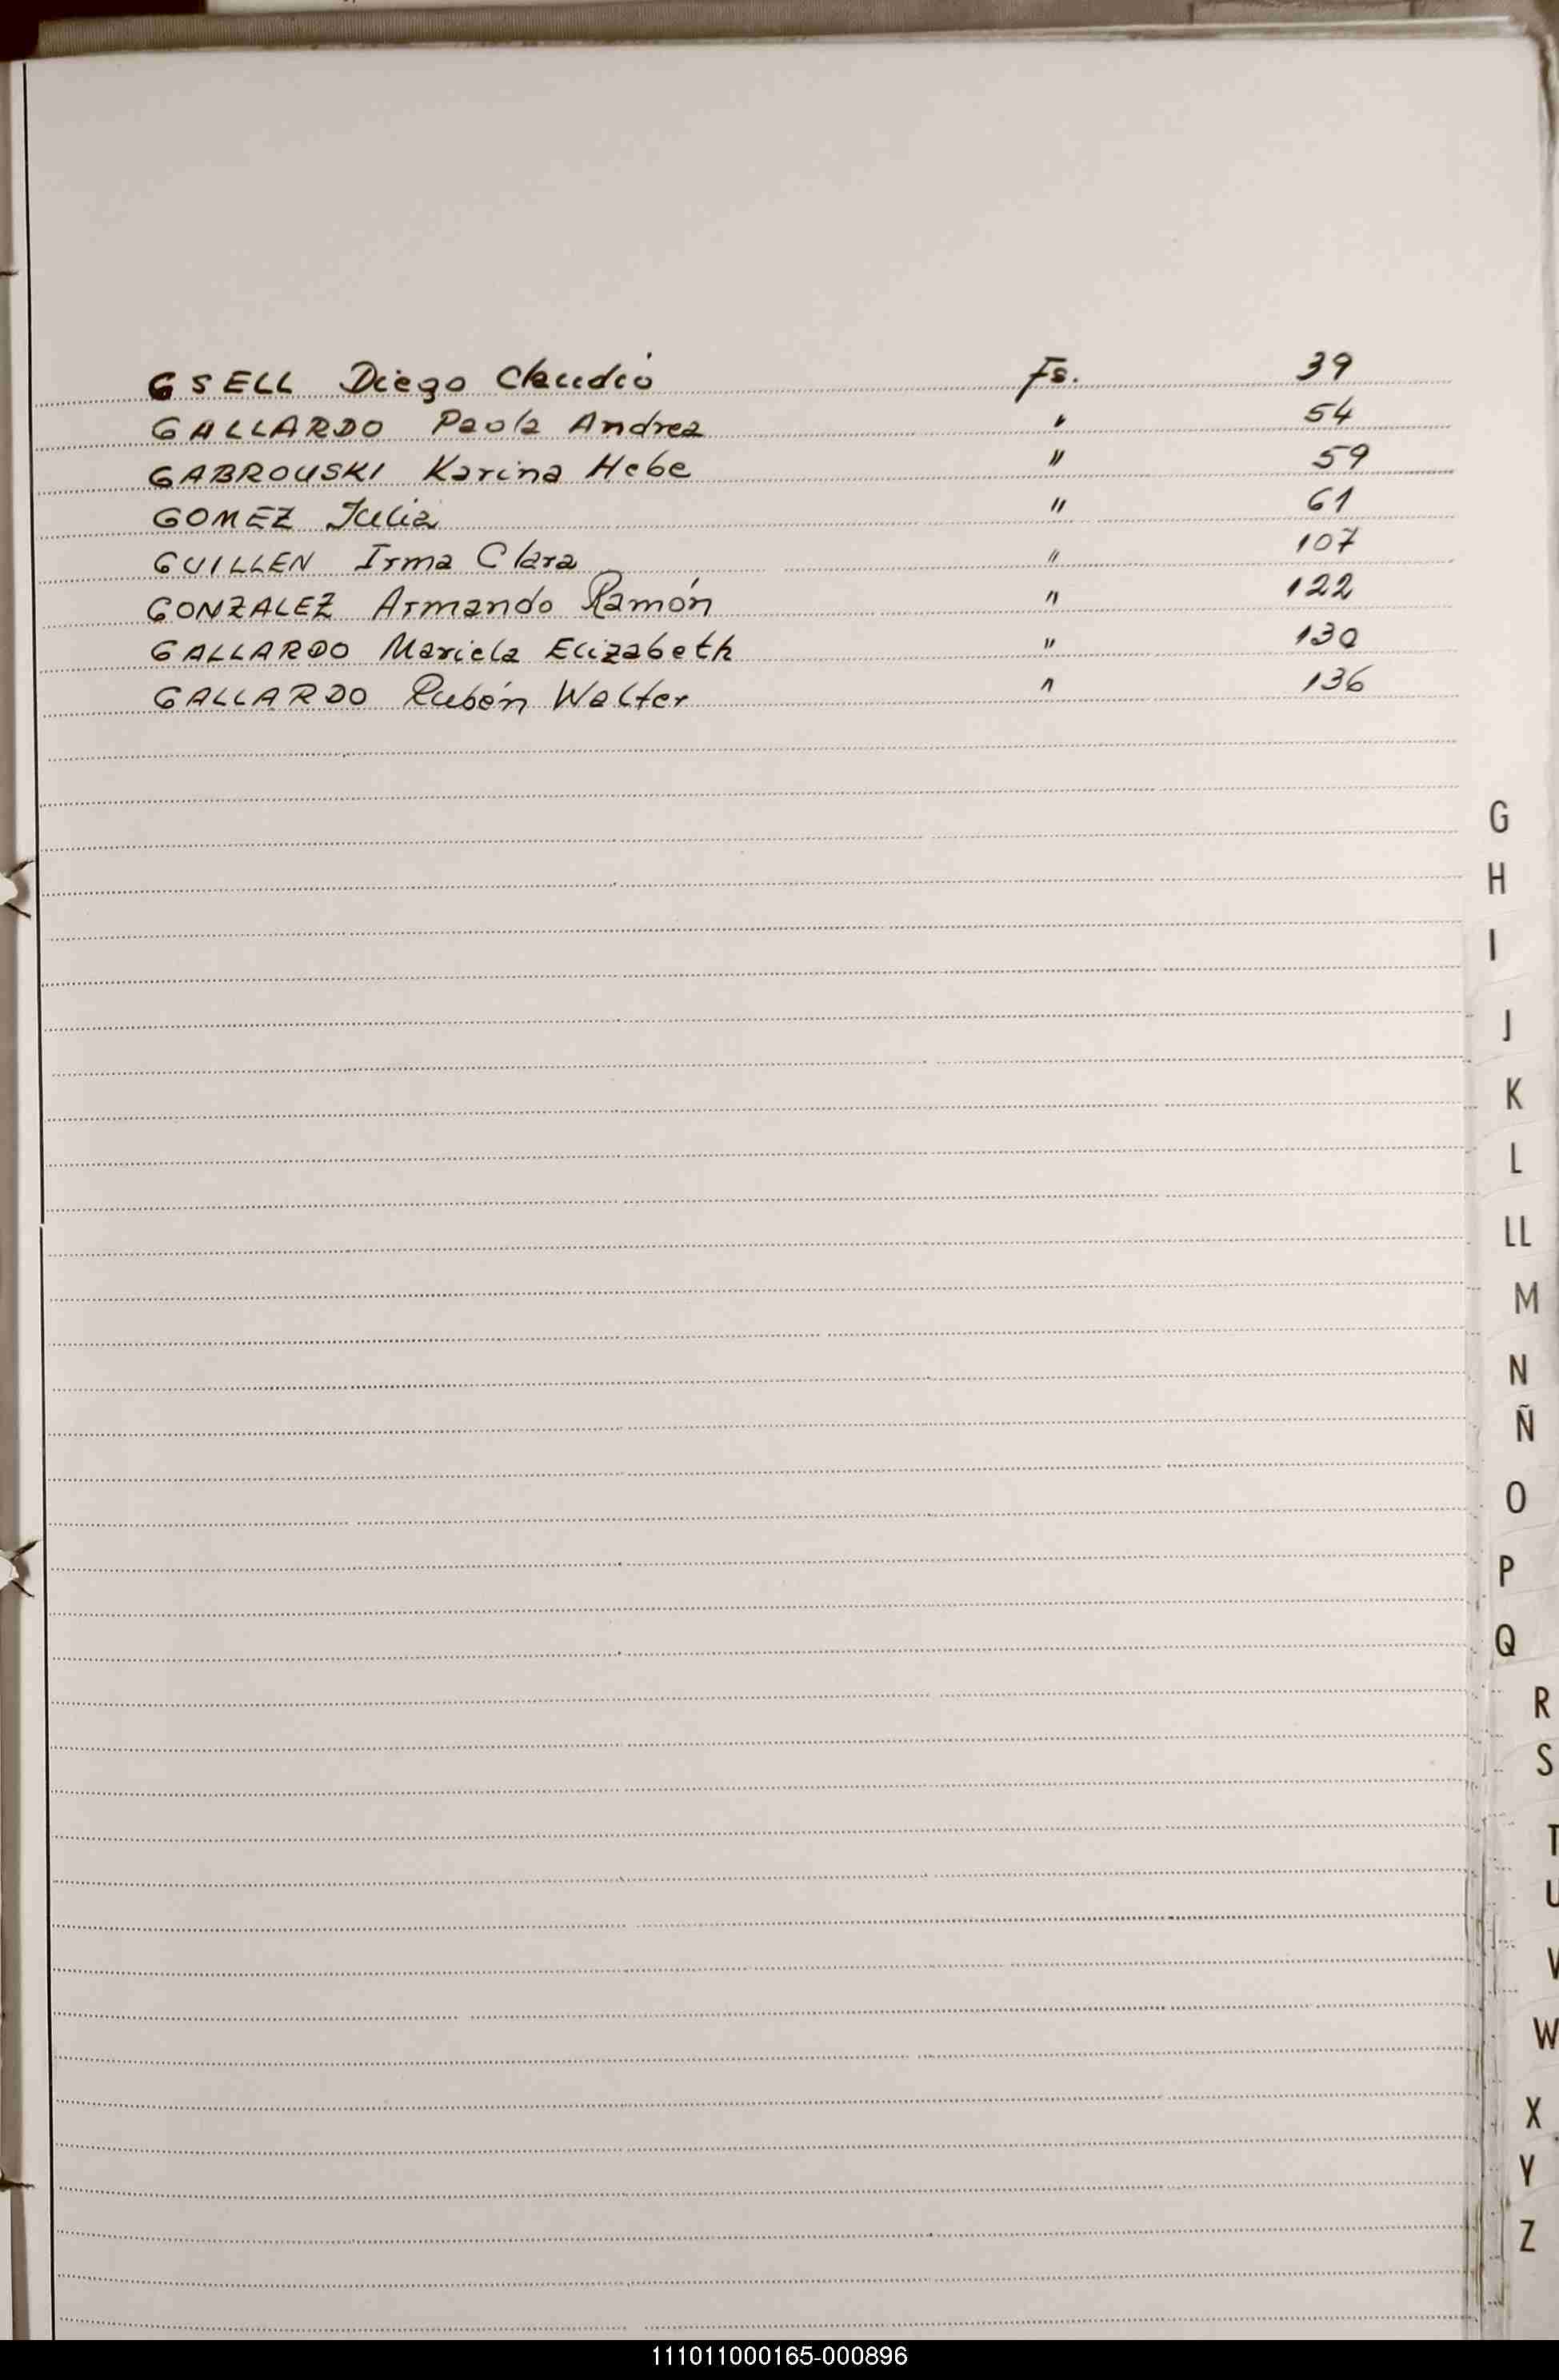 GSELL Diego Claudio Fs. 39
GALLARDO Paola Andrea " 54
GABROUSKI Karina Hebe " 59
GOMEZ Julia " 61
GUILLEN Irma Clara " 107
GONZALEZ Armando Ramón " 122
GALLARDO Mariela Elizabeth " 130
GALLARDO Rubén Walter " 136
G
H
I
J
K
L
LL
M
N
Ñ
O
P
Q
R
S
T
U
V
W
X
Y
Z
111011000165-000896